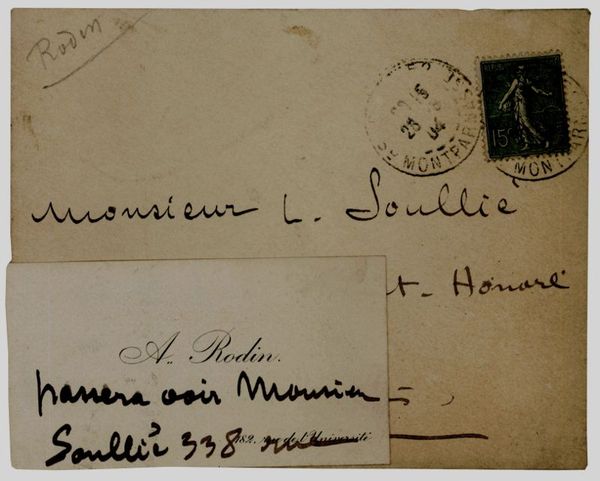 Rodin
MONTPARNASSE
15 c
MONTPARN
Monsieur L. Soullié
t-Honoré
A. Rodin.
passera voir Monsieur
Soullié 338 rue
182, rue de l'Université